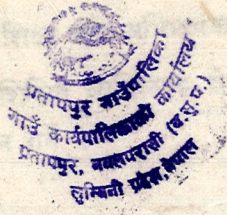 प्रतापपुर गाउँपालिका
गाउँ कार्यपालिकाको कार्यालय
प्रतापपुर, नवलपरासी (ब.सु.प.)
लुम्बिनी प्रदेश, नेपाल